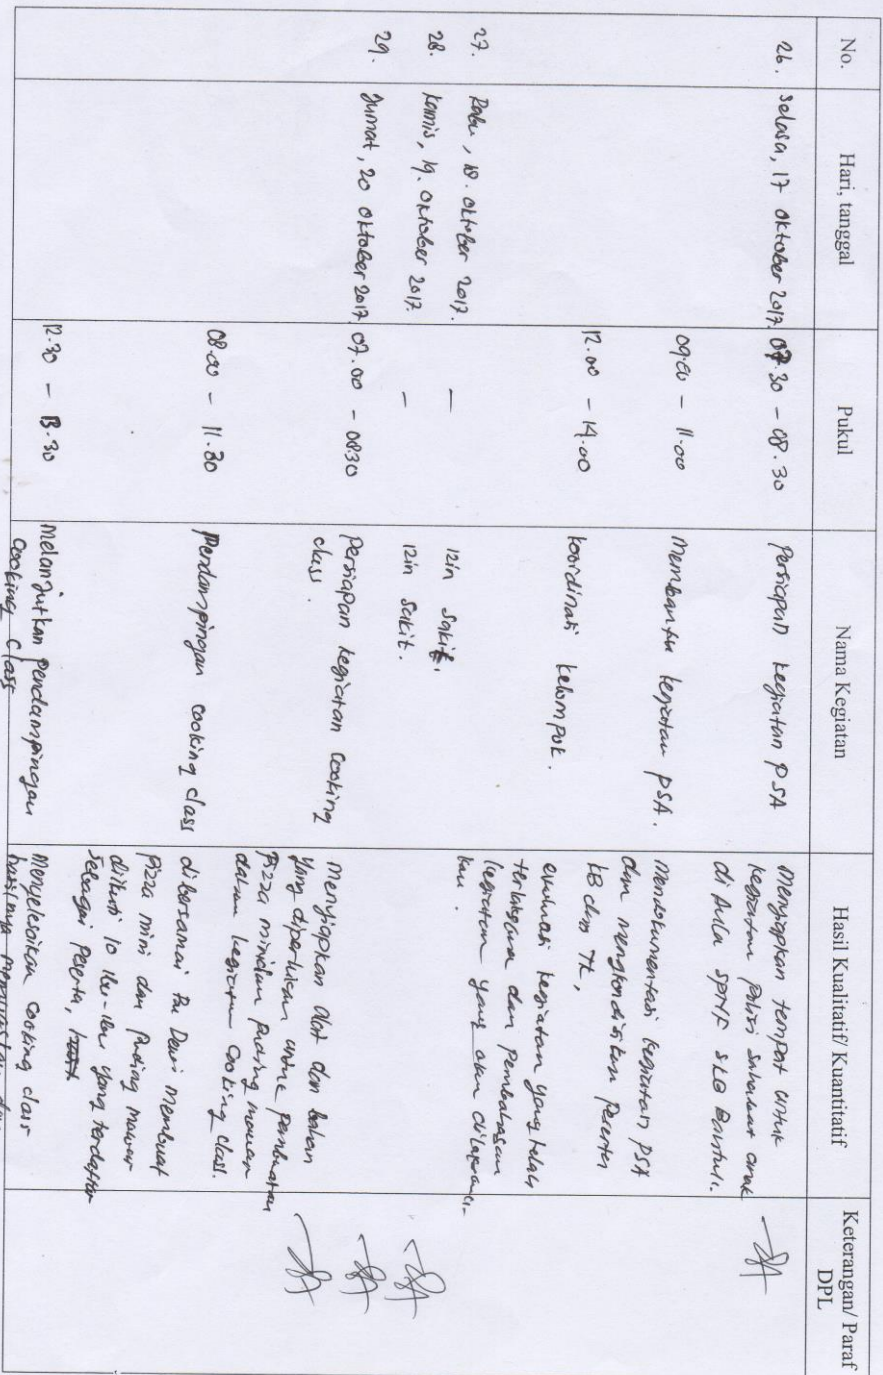 No.
Hari, tanggal
Pukul
Nama Kegiatan
Hasil Kualitatif/ Kuantitatif
Keterangan/ Paraf
DPL
26.
Selasa, 17 oktober 2017.
07.30 - 08.30
Persiapan kegiatan PSA
Menyiapkan tempat untuk
kegiatan polisi sahabat anak
di Aula SPMF SLB Bantul.
09.00 - 11.00
Membantu kegiatan PSA.
Mendokumentasi kegiatan PSA
dan mengkondisikan peserta
KB dan TK,
12.00 - 14.00
koordinasi kelompok.
evaluasi kegiatan yang telah
terlaksana dan pembahasan
kegiatan yang akan
27.
Rabu, 18. oktober 2017.
—
izin sakit.
28.
Kamis, 19. oktober 2017.
—
izin sakit.
29.
Jumat, 20 oktober 2017.
07.00 - 08.30
Persiapan kegiatan cooking
class.
Menyiapkan alat dan bahan
yang diperlukan untuk pembuatan
Pizza mini dan puding mawar
dalam kegiatan cooking class.
08.00 - 11.30
Pendampingan cooking class
dibersamai Bu Dewi membuat
Pizza mini dan Puding mawar
diikuti 10 ibu-ibu yang terdaftar
sebagai peserta,
12.30 - 13.30
Melanjutkan pendampingan
cooking class
Menyelesaikan cooking class
hasilnya